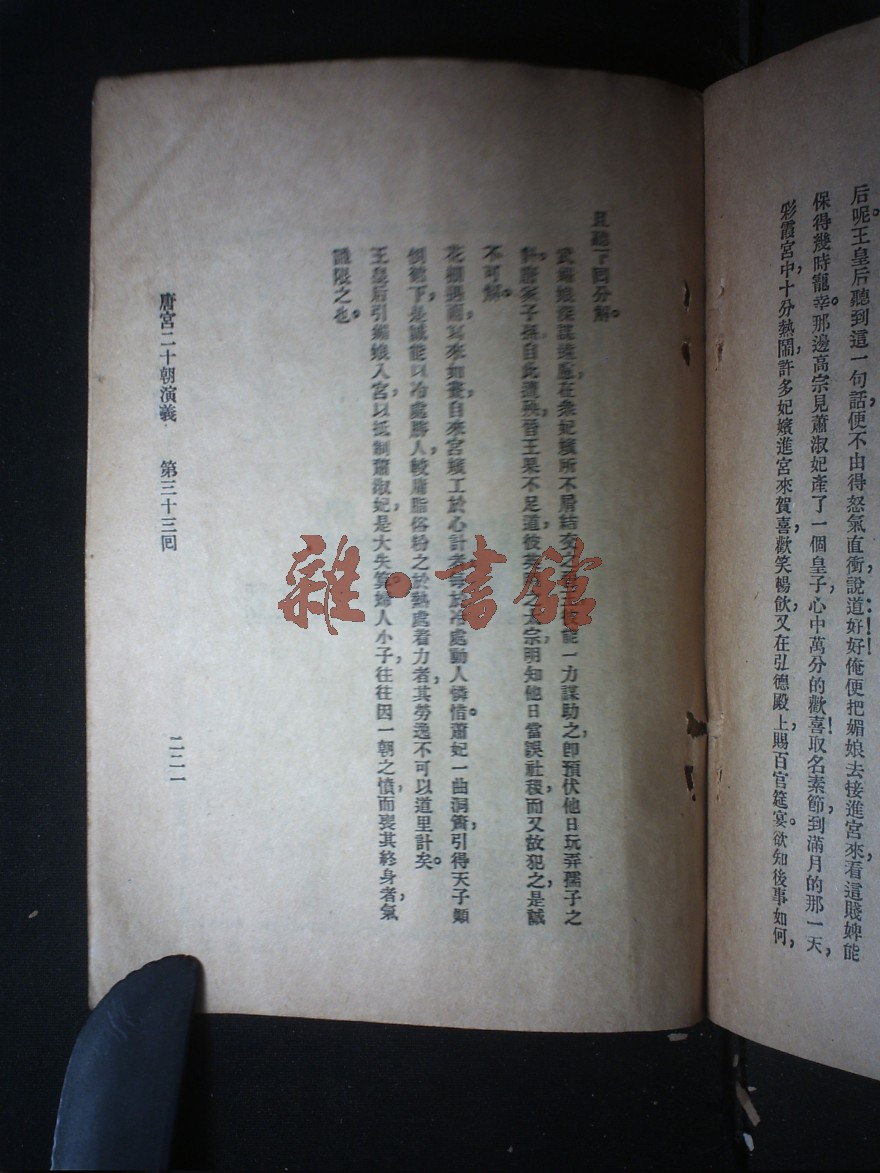 后呢王皇后聽到這一句話便不由得怒氣直衝說道好好俺便把媚娘去接進宮來看這賤婢能
保得幾時寵幸那邊高宗見蕭淑妃產了一個皇子心中萬分的歡喜取名素節到滿月的那一天，
彩霞宮中十分熱鬧許多妃嬪進宮來賀喜歡笑暢飲又在弘德殿上賜百官筵宴。欲知後事如何，
且聽下回分解。
武媚娘深謀遠慮在衆妃嬪所不屑結交之能一力謀助之卽預伏他日玩弄孺子之
計唐家子孫自此遭殃晉王果不足道彼英之太宗明知他日當誤社稷而又故犯之是誠
不可解。
花棚遇雨寫來如畫自來宮嬪工於心計者每於冷處動人憐惜蕭妃一曲洞簫引得天子顛
倒裙下是誠能以冷處勝人較庸脂俗粉之於熱處着力者其勞逸不可以道里計矣。
王皇后引媚娘入宮以抵制蕭淑妃是大失算婦人小子往往因一朝之憤而喪其終身者氣
限之也。
唐宮二十朝演義 第三十三回
二二一
雜·書館